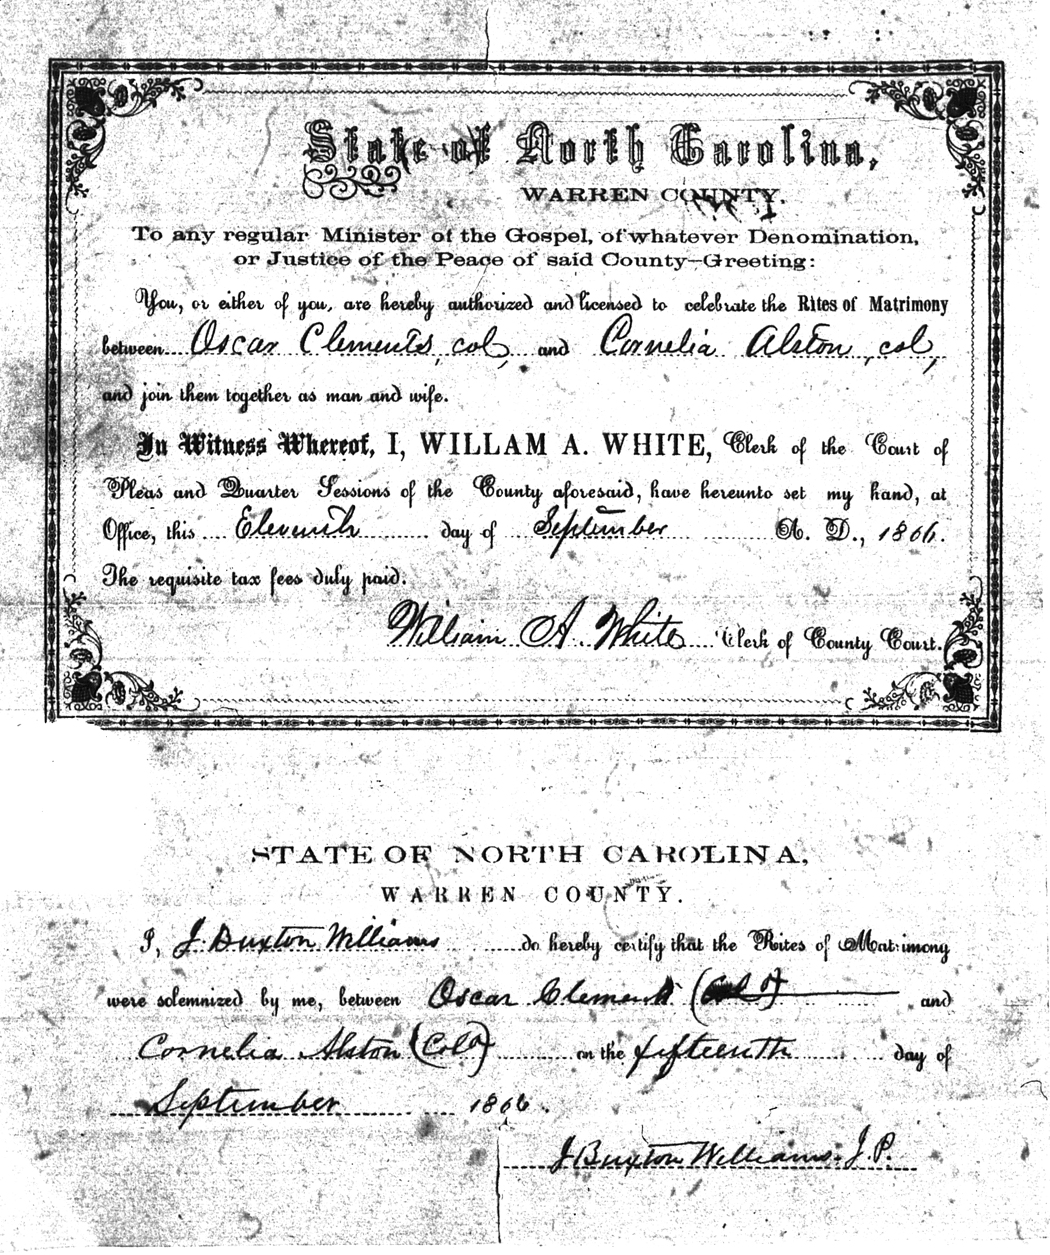 State of North Carolina,
WARREN COUNTY.
To any regular Minister of the Gospel, of whatever Denomination,
or Justice of the Peace of said County—Greeting:
You, or either of you, are hereby authorized and licensed to celebrate the Rites of Matrimony
between Oscar Clements, col, and Cornelia Alston, col,
and join them together as man and wife.
In Witness Whereof, I, WILLAM A. WHITE, Clerk of the Court of
Pleas and Quarter Sessions of the County aforesaid, have hereunto set my hand, at
Office, this Eleventh day of September A. D., 1866.
The requisite tax fees duly paid.
William A White Clerk of County Court.
STATE OF NORTH CAROLINA,
WARREN COUNTY.
I, J. Buxton Williams do hereby certify that the Rites of Matrimony
were solemnized by me, between Oscar Clements (Col d) and
Cornelia Alston (Col d) on the fifteenth day of
September 1866.
J Buxton Williams. J. P.